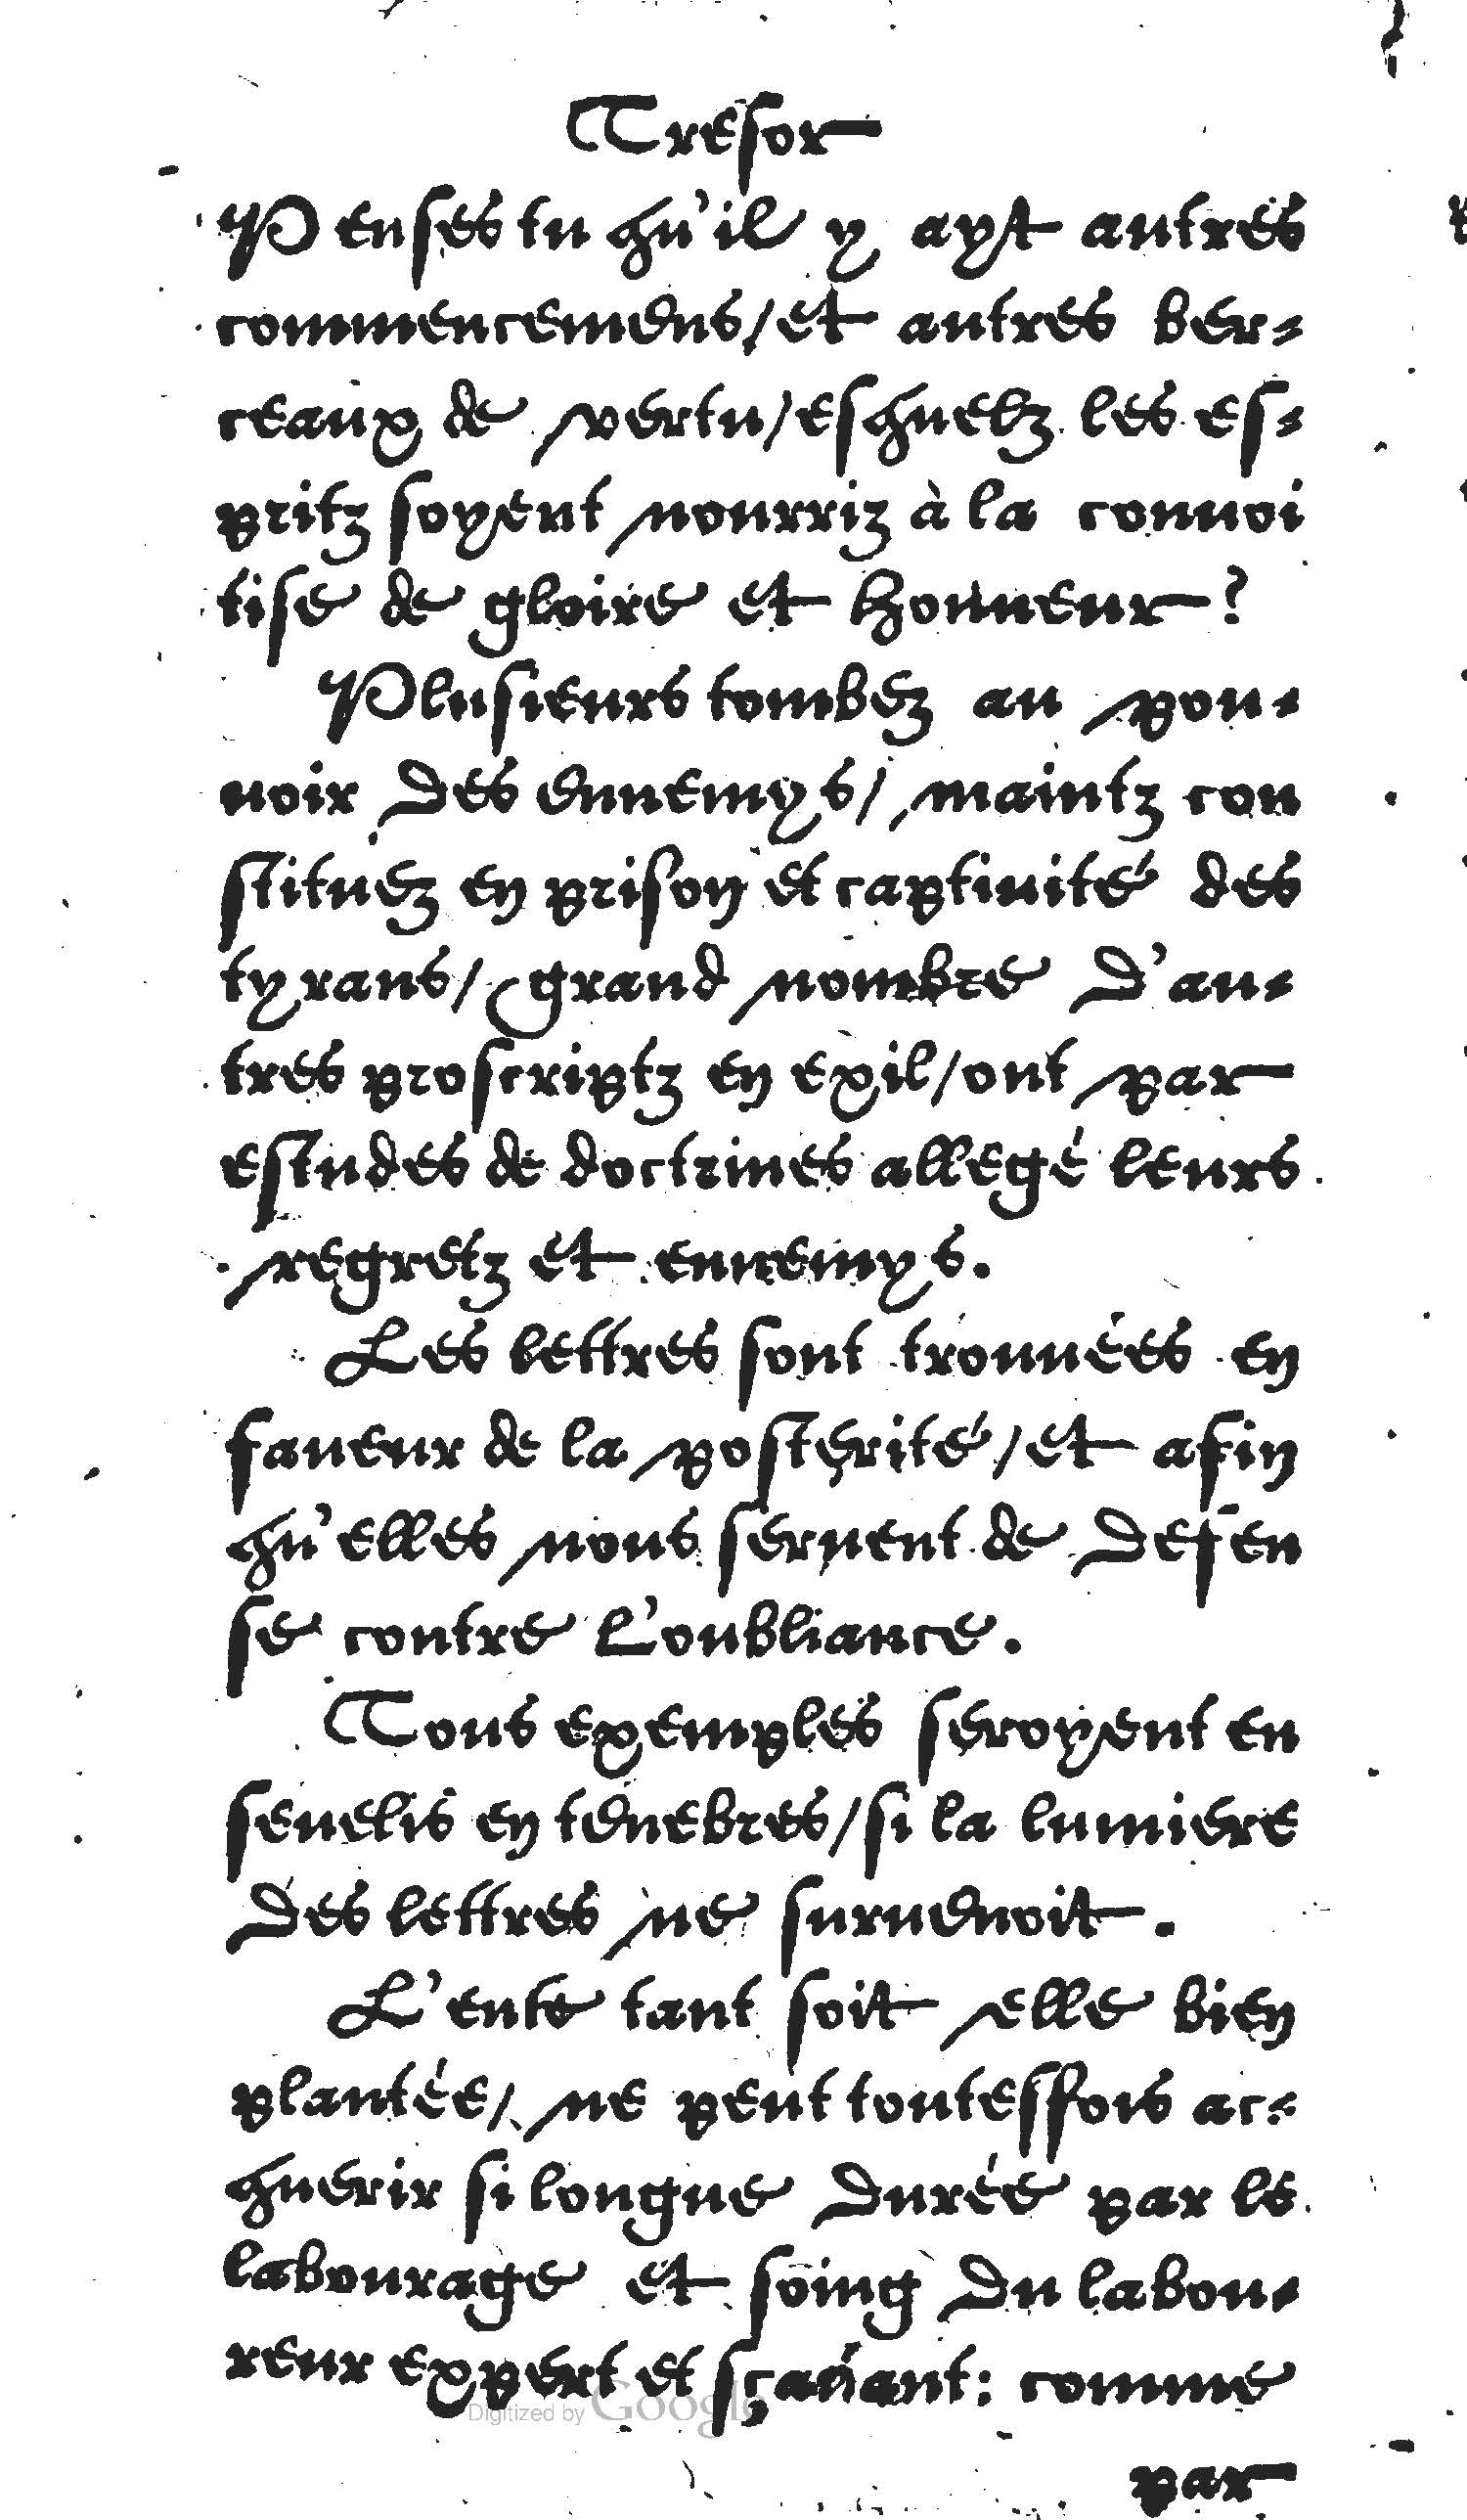 Tresor
Penses tu qu'il y ayt autres
commencemens,/et autres ber-
ceaux de vertu/esquelz les es-
pritz soyent nourriz à la conuoi
tise de gloire et honneur?
Plusieurs tombez au pou-
uoir des ennemys/ maintz con
stituez en prison et captiuité des
tyrans/ grand nombre d'au-
tres proscriptz en exil/ont par
estudes de doctrines allegé leurs
regretz et ennemys.
Les lettres sont trouuées en
faueur de la posterité/et afin
qu'elles nous seruent de defen
se contre l'oubliance.
Tous exemples seroyent en
seuelis en tenebres/si la lumiere
des lettres ne suruenoit.
L'ente tant soit elle bien
plantée/ ne peut toutesfois ac-
querir si longue durée par le
labourage et soing du labou-
reur expert et sçauant: comme
Digitized by Google
par